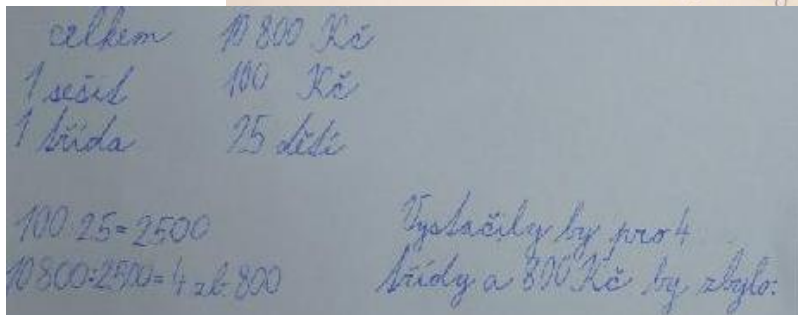 celkem 10 800 Kč
1 sešit 100 Kč
1 třída 25 dětí
100·25=2500
10 800÷2500=4 zb. 800
Vystačily by pro 4
třídy a 800 Kč by zbylo.